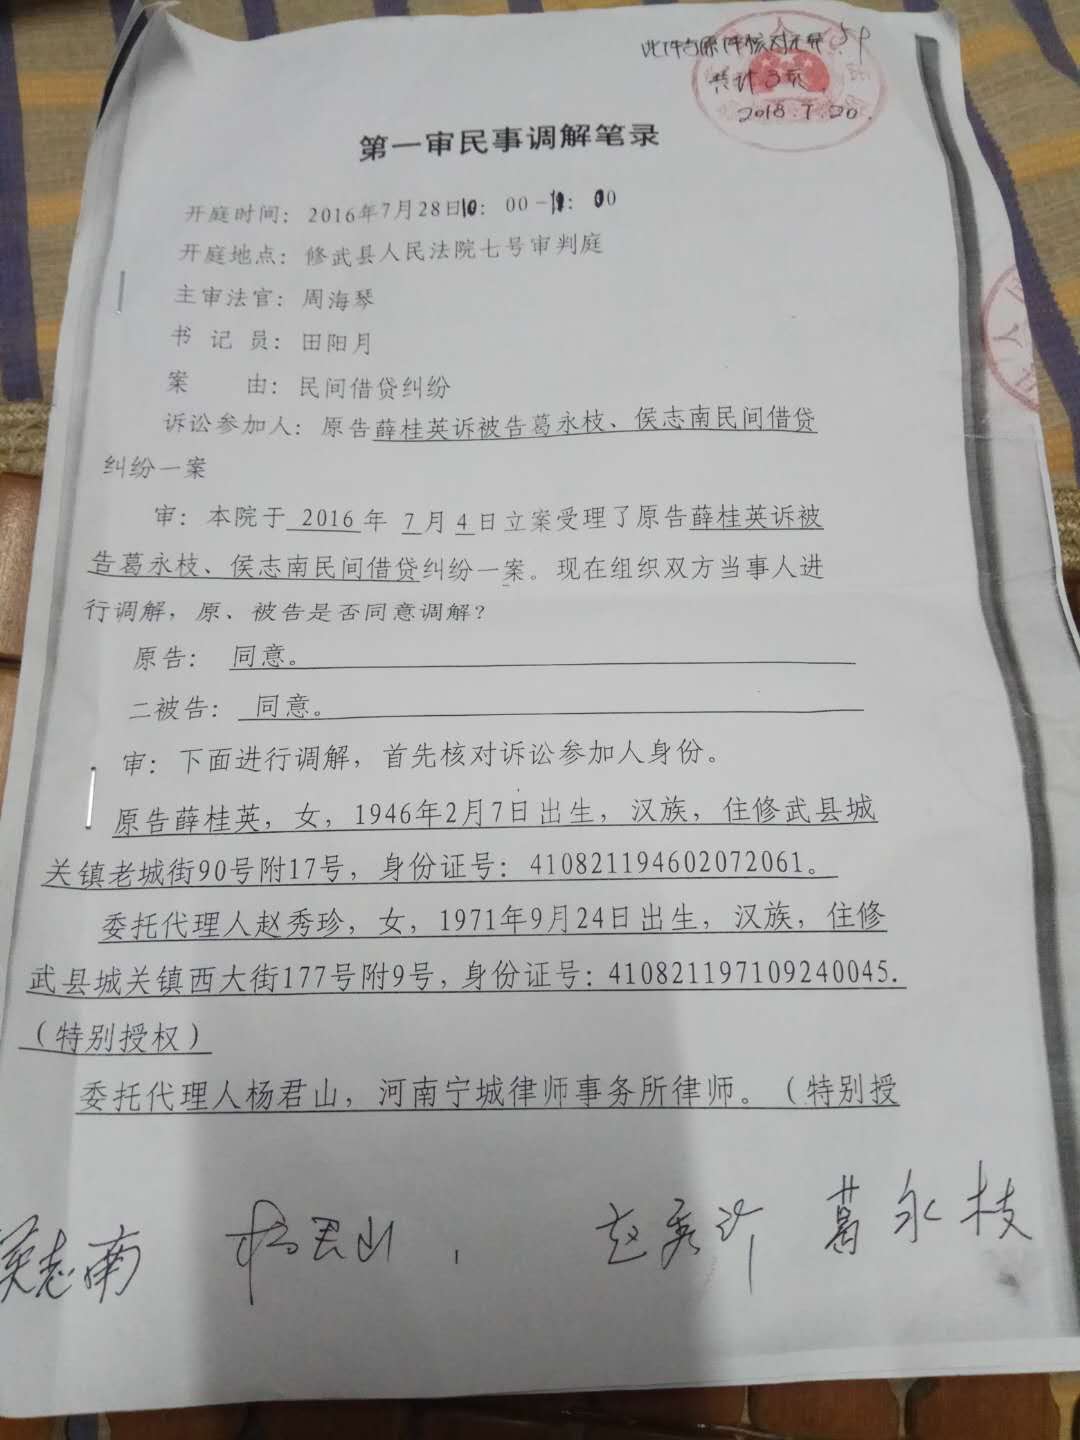 此件与原件核对无异
共计3页
2018.7.20.
第一审民事调解笔录
开庭时间：2016年7月28日10：00-1：00
开庭地点：修武县人民法院七号审判庭
主审法官：周海琴
书 记 员：田阳月
案 由：民间借贷纠纷
诉讼参加人：原告薛桂英诉被告葛永枝、侯志南民间借贷
纠纷一案
审：本院于 2016 年 7 月 4 日立案受理了原告薛桂英诉被
告葛永枝、侯志南民间借贷纠纷一案。现在组织双方当事人进
行调解，原、被告是否同意调解？
原告： 同意。
二被告： 同意。
审：下面进行调解，首先核对诉讼参加人身份。
原告薛桂英，女，1946年2月7日出生，汉族，住修武县城
关镇老城街90号附17号，身份证号：410821194602072061。
委托代理人赵秀珍，女，1971年9月24日出生，汉族，住修
武县城关镇西大街177号附9号，身份证号：410821197109240045.
（特别授权）
委托代理人杨君山，河南宁城律师事务所律师。（特别授
侯志南 杨君山 赵秀珍 葛永枝